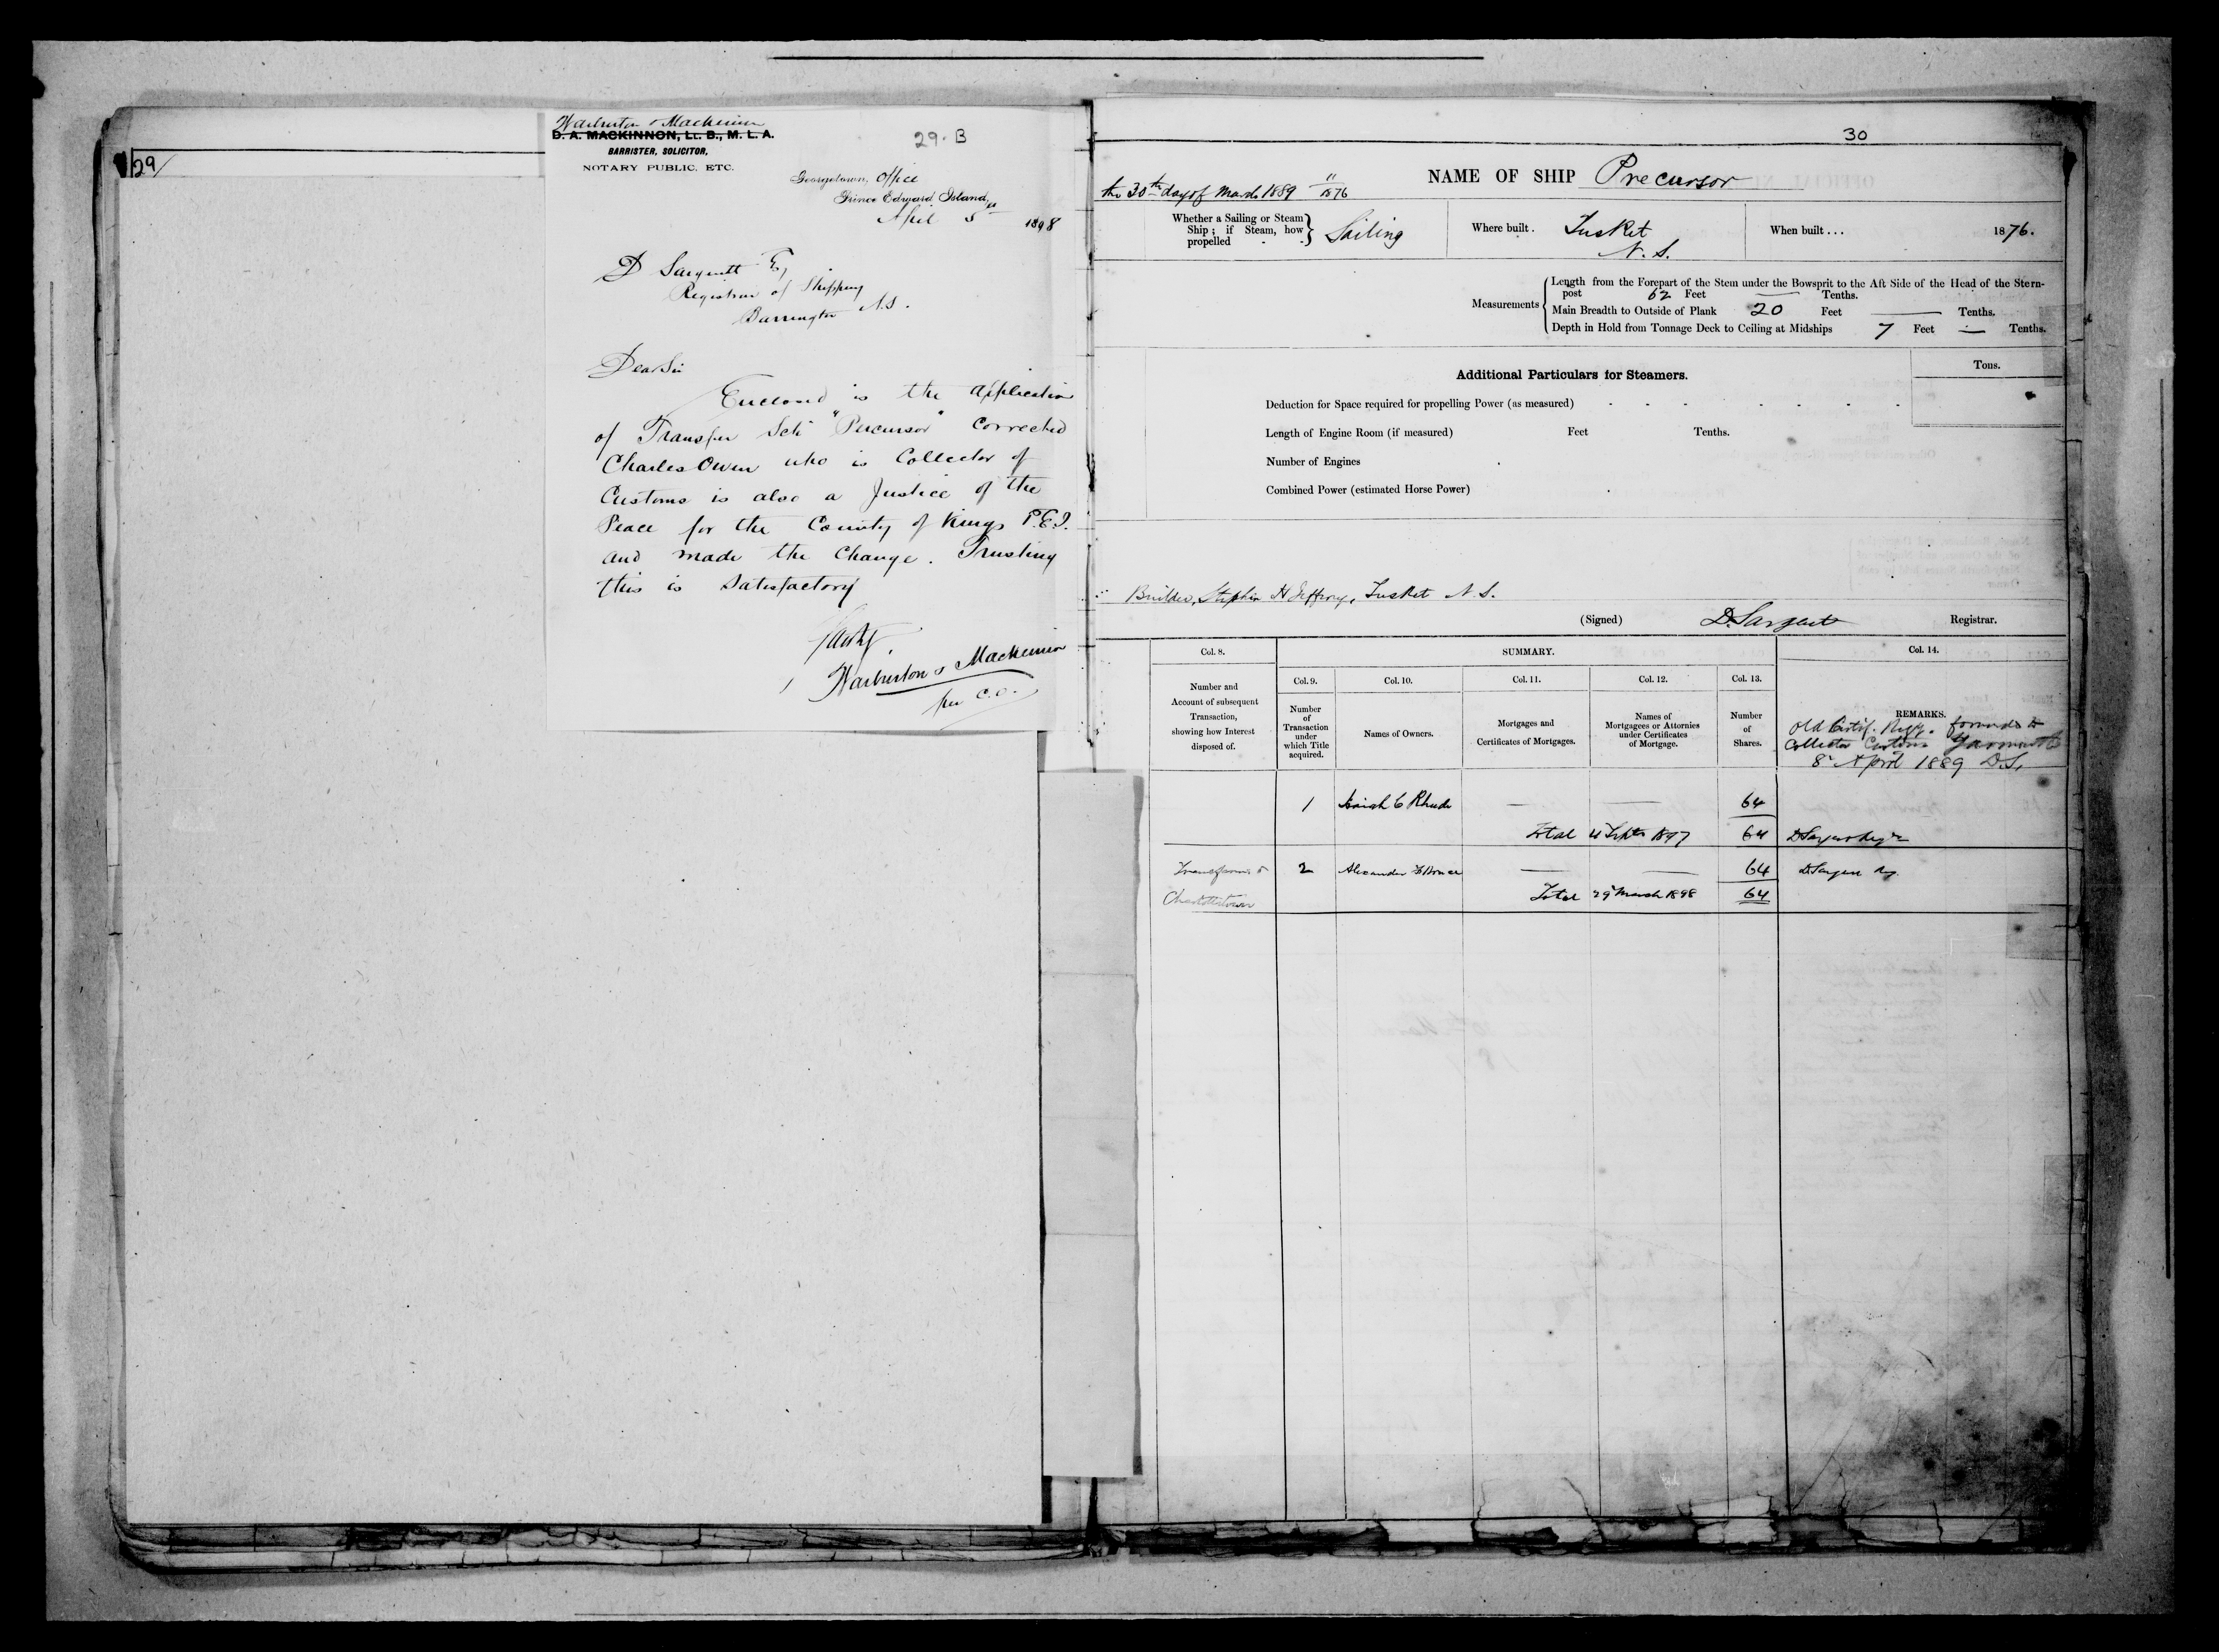 29
29. B
Warburton & Mackinnon
D. A. MACKINNON, LL. B., M. L. A.
BARRISTER, SOLICITOR,
NOTARY PUBLIC. ETC.
Georgetown, Office
Prince Edward Island,
April 5th 1898
D Sargent Esq
Registrar of Shipping
Barrington N.S.
Dear Sir
Enclosed is the application
of Transfer Sch "Percursor" corrected
Charles Owen who is Collector of
Customs is also a Justice of the
Peace for the County of Kings P.E.I.
and made the change. Trusting
this is Satisfactory
Warburton & Mackinnon
per C.O.
30
NAME OF SHIP Precursor
the 30th day of March 1889 11/1876
Whether a Sailing or Steam Ship; if Steam, how propelled - - Sailing
Where built. Tusket N. S.
When built... 1876.
Measurements
Length from the Forepart of the Stem under the Bowsprit to the Aft Side of the Head of the Stern-
post 62 Feet — Tenths.
Main Breadth to Outside of Plank 20 Feet — Tenths.
Depth in Hold from Tonnage Deck to Ceiling at Midships 7 Feet — Tenths.
Additional Particulars for Steamers.
Tons.
Deduction for Space required for propelling Power (as measured)
Length of Engine Room (if measured) Feet Tenths.
Number of Engines
Combined Power (estimated Horse Power)
Builder, Stephen H Jeffery, Tusket N. S.
(Signed) D. Sargent Registrar.
Col. 8.
Number and
Account of subsequent
Transaction,
showing how Interest
disposed of.
SUMMARY.
Col. 9.
Number
of
Transaction
under
which Title
acquired.
Col. 10.
Names of Owners.
Col. 11.
Mortgages and
Certificates of Mortgages.
Col. 12.
Names of
Mortgagees or Attornies
under Certificates
of Mortgage.
Col. 13.
Number
of
Shares.
Col. 14.
REMARKS.
Old Certif. Regy. forwarded to
Collector Customs Yarmouth
8 April 1889 D.S.
1 Isaiah C Rhude — — 64
Total 4 Septr 1897 64 D Sargent Regr
Transferred to 2 Alexander — — 64 D Sargent Reg
Charlottetown Total 29 March 1898 64